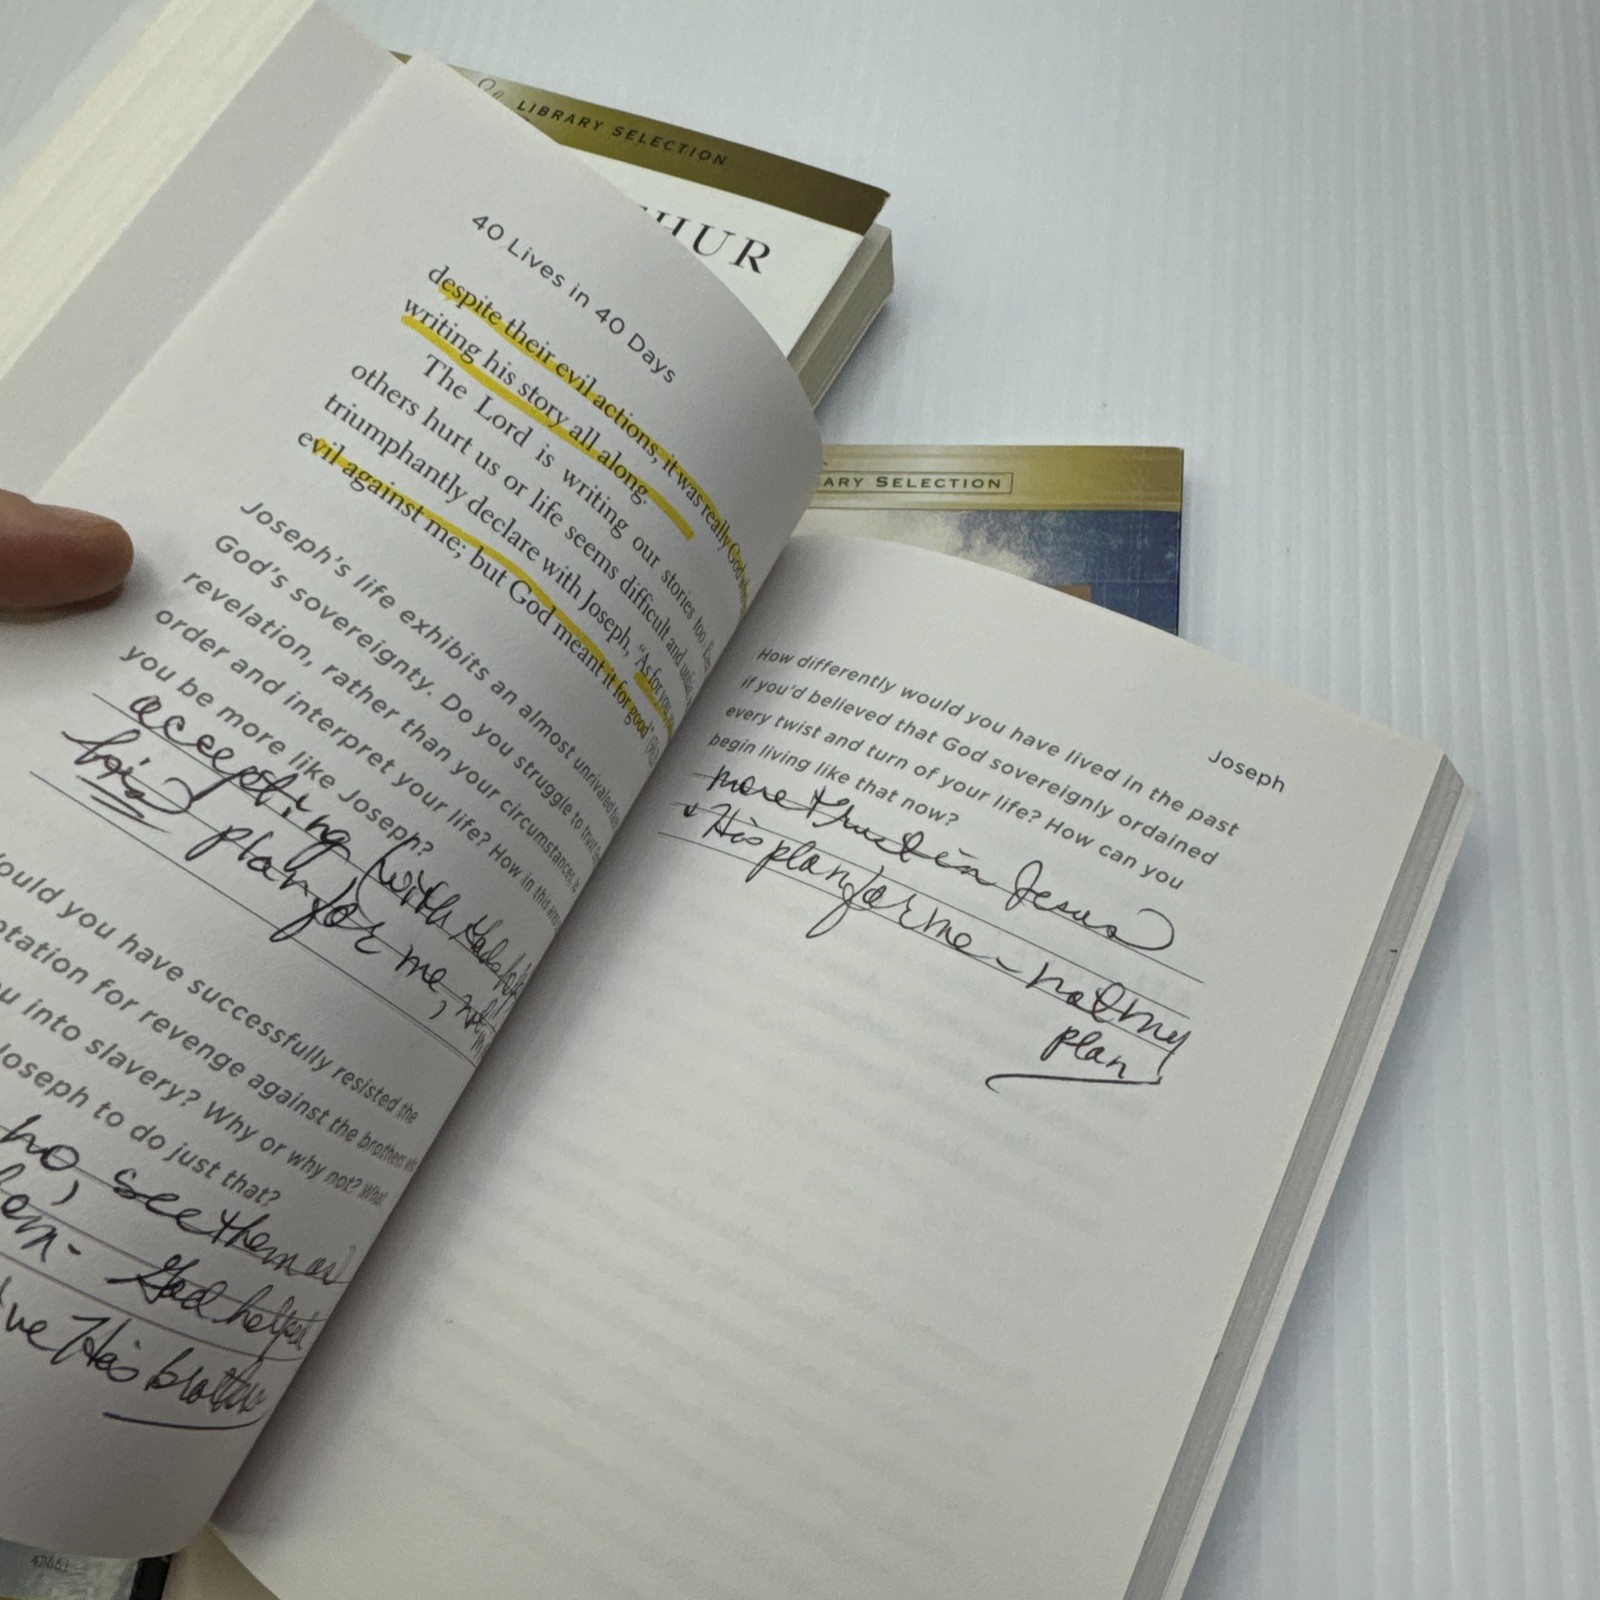 LIBRARY SELECTION
HUR
ARY SELECTION
40 Lives in 40 Days
despite their evil actions, it was really God
writing his story all along.
The Lord is writing our stories too.
others hurt us or life seems difficult and
triumphantly declare with Joseph, "As for you,
evil against me; but God meant it for good"
Joseph's life exhibits an almost unrivalled
God's sovereignty. Do you struggle to trust
revelation, rather than your circumstances, to
order and interpret your life? How in this
you be more like Joseph?
accepting (with God's
his plan for me, not
ould you have successfully resisted the
tation for revenge against the brothers
u into slavery? Why or why not? What
Joseph to do just that?
no, see them as
God helped
ve His brothers
Joseph
How differently would you have lived in the past
if you'd believed that God sovereignly ordained
every twist and turn of your life? How can you
begin living like that now?
more trust in Jesus
+ His plan for me - not my
plan